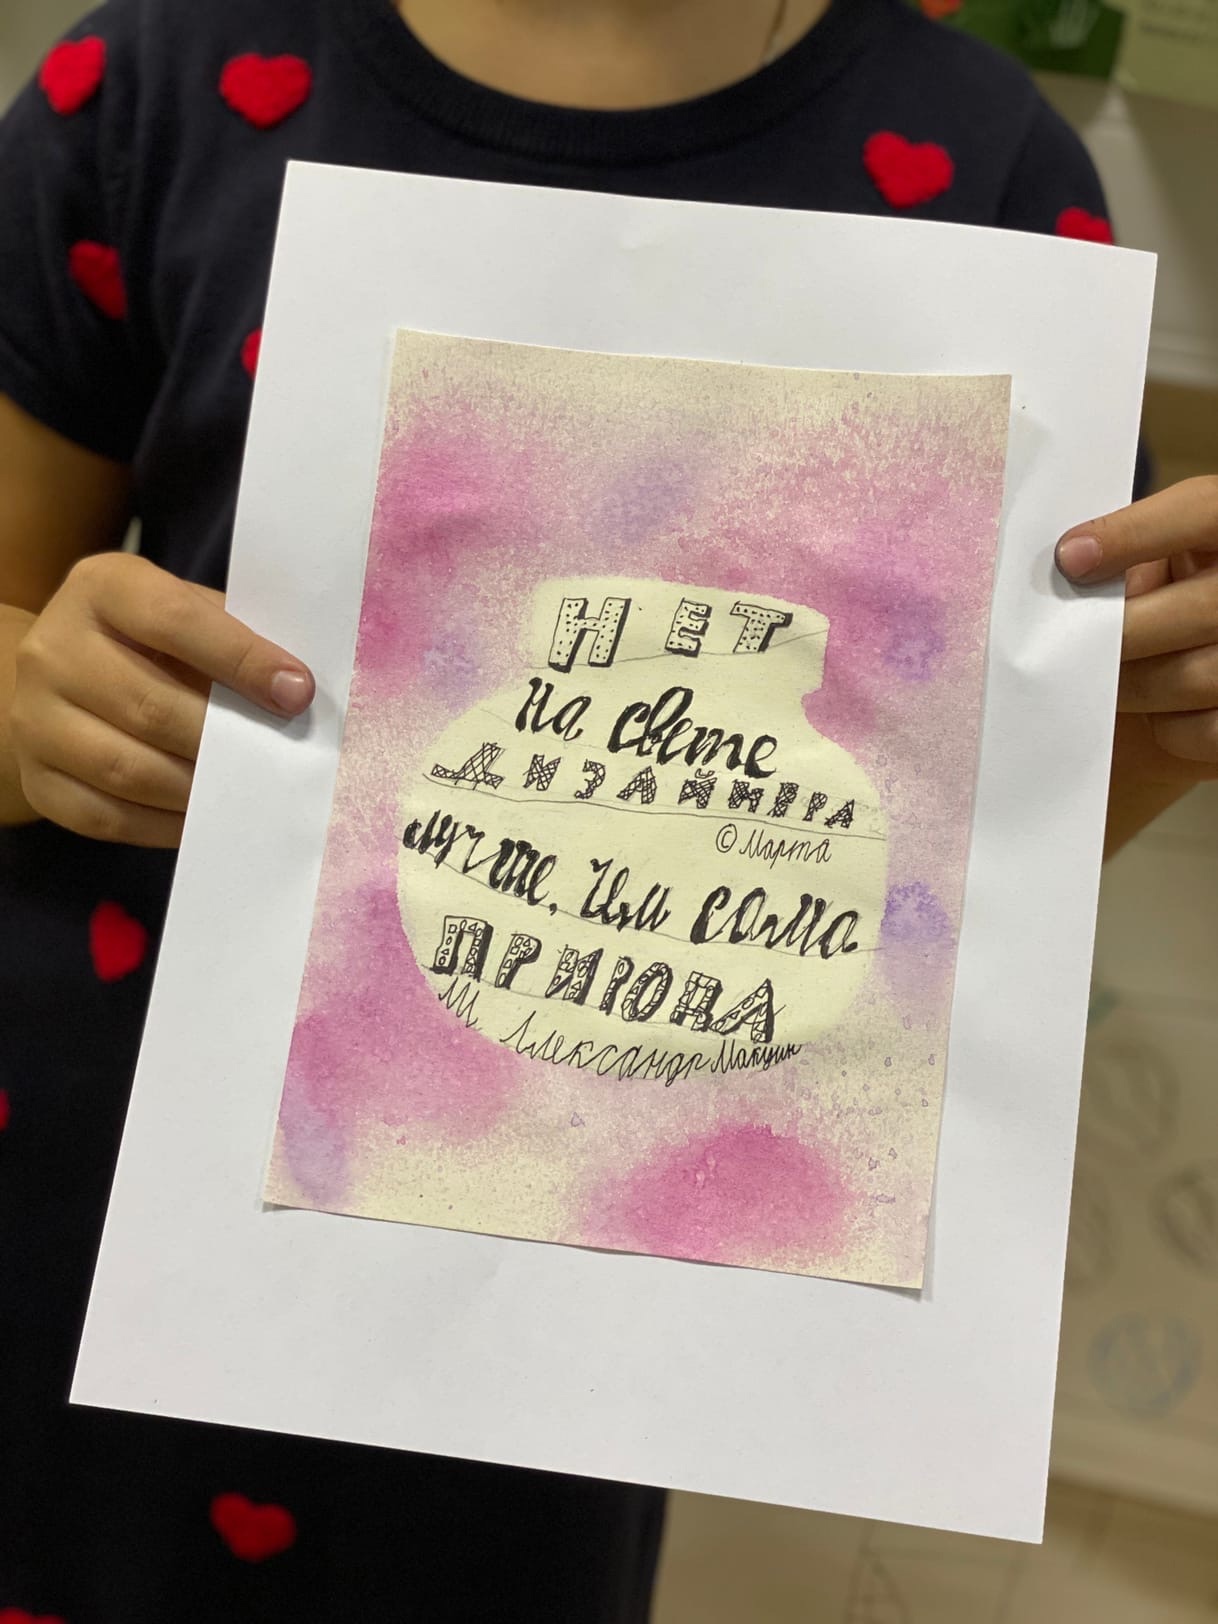 НЕТ
на свете
ДИЗАЙНЕРА
© Марта
лучше, чем сама
ПРИРОДА
Александр Макуин